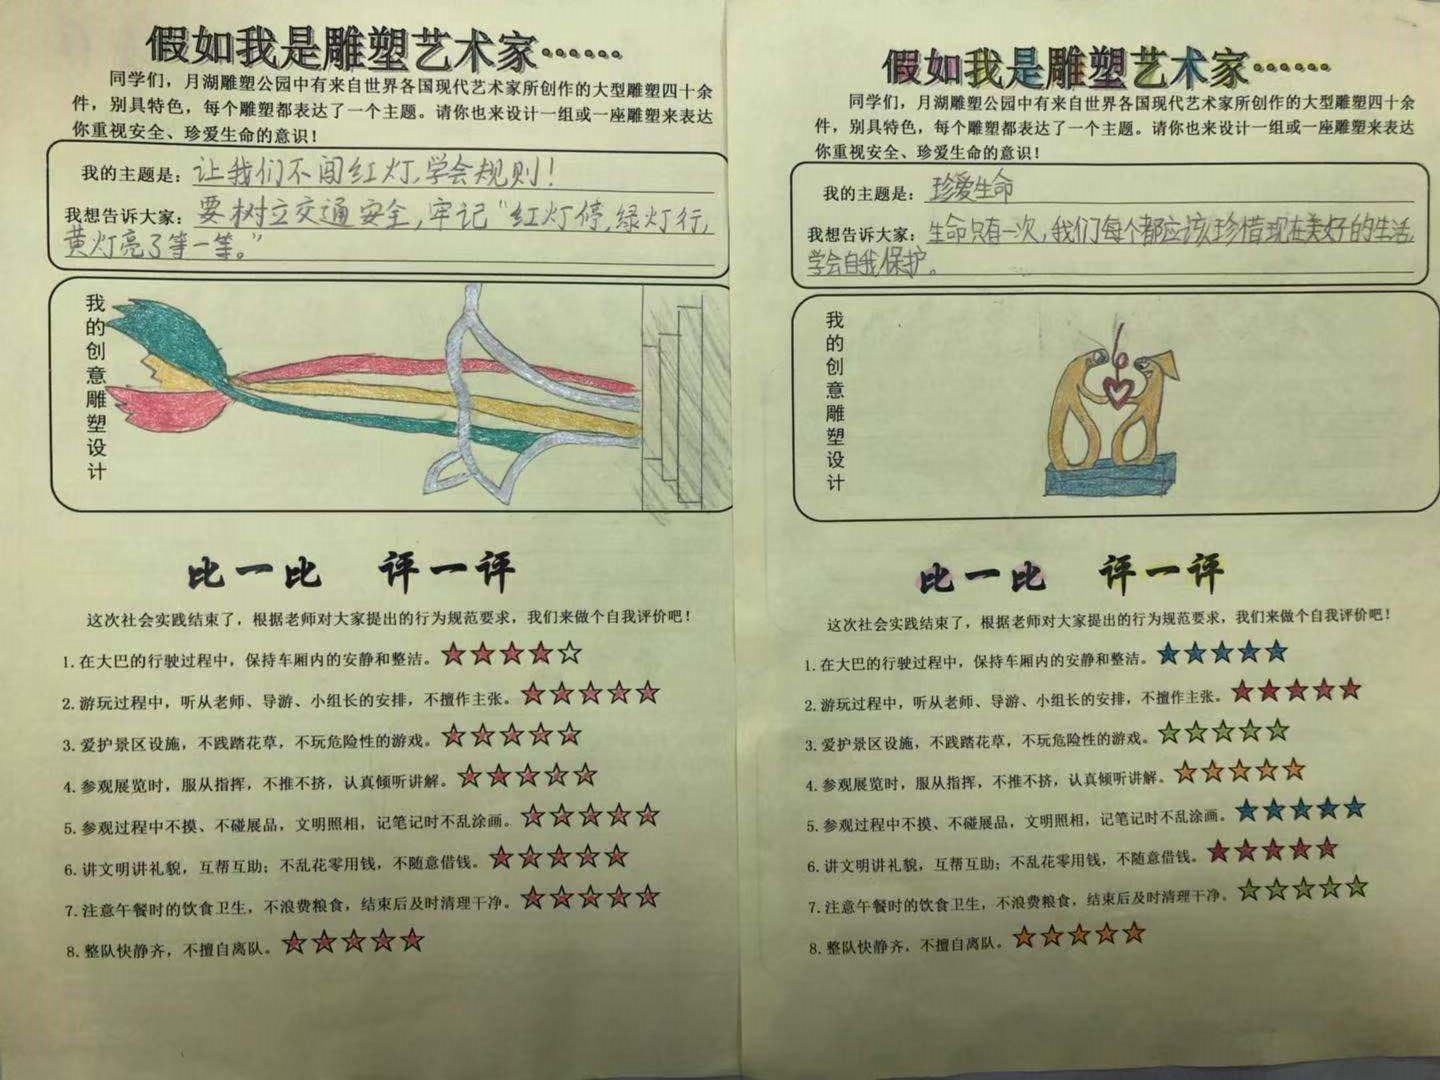 假如我是雕塑艺术家……
同学们，月湖雕塑公园中有来自世界各国现代艺术家所创作的大型雕塑四十余
件，别具特色，每个雕塑都表达了一个主题。请你也来设计一组或一座雕塑来表达
你重视安全、珍爱生命的意识！
我的主题是：让我们不闯红灯，学会规则！
我想告诉大家：要树立交通安全，牢记“红灯停，绿灯行，
黄灯亮了等一等。”
我的创意雕塑设计
比一比 评一评
这次社会实践结束了，根据老师对大家提出的行为规范要求，我们来做个自我评价吧！
1.在大巴的行驶过程中，保持车厢内的安静和整洁。★★★★☆
2.游玩过程中，听从老师、导游、小组长的安排，不擅作主张。★★★★★
3.爱护景区设施，不践踏花草，不玩危险性的游戏。★★★★★
4.参观展览时，服从指挥，不推不挤，认真倾听讲解。★★★★★
5.参观过程中不摸、不碰展品，文明照相，记笔记时不乱涂画。★★★★★
6.讲文明讲礼貌，互帮互助；不乱花零用钱，不随意借钱。★★★★★
7.注意午餐时的饮食卫生，不浪费粮食，结束后及时清理干净。★★★★★
8.整队快静齐，不擅自离队。★★★★★
假如我是雕塑艺术家……
同学们，月湖雕塑公园中有来自世界各国现代艺术家所创作的大型雕塑四十余
件，别具特色，每个雕塑都表达了一个主题。请你也来设计一组或一座雕塑来表达
你重视安全、珍爱生命的意识！
我的主题是：珍爱生命
我想告诉大家：生命只有一次，我们每个都应该珍惜现在美好的生活，
学会自我保护。
我的创意雕塑设计
比一比 评一评
这次社会实践结束了，根据老师对大家提出的行为规范要求，我们来做个自我评价吧！
1.在大巴的行驶过程中，保持车厢内的安静和整洁。★★★★★
2.游玩过程中，听从老师、导游、小组长的安排，不擅作主张。★★★★★
3.爱护景区设施，不践踏花草，不玩危险性的游戏。★★★★★
4.参观展览时，服从指挥，不推不挤，认真倾听讲解。★★★★★
5.参观过程中不摸、不碰展品，文明照相，记笔记时不乱涂画。★★★★★
6.讲文明讲礼貌，互帮互助；不乱花零用钱，不随意借钱。★★★★★
7.注意午餐时的饮食卫生，不浪费粮食，结束后及时清理干净。★★★★★
8.整队快静齐，不擅自离队。★★★★★